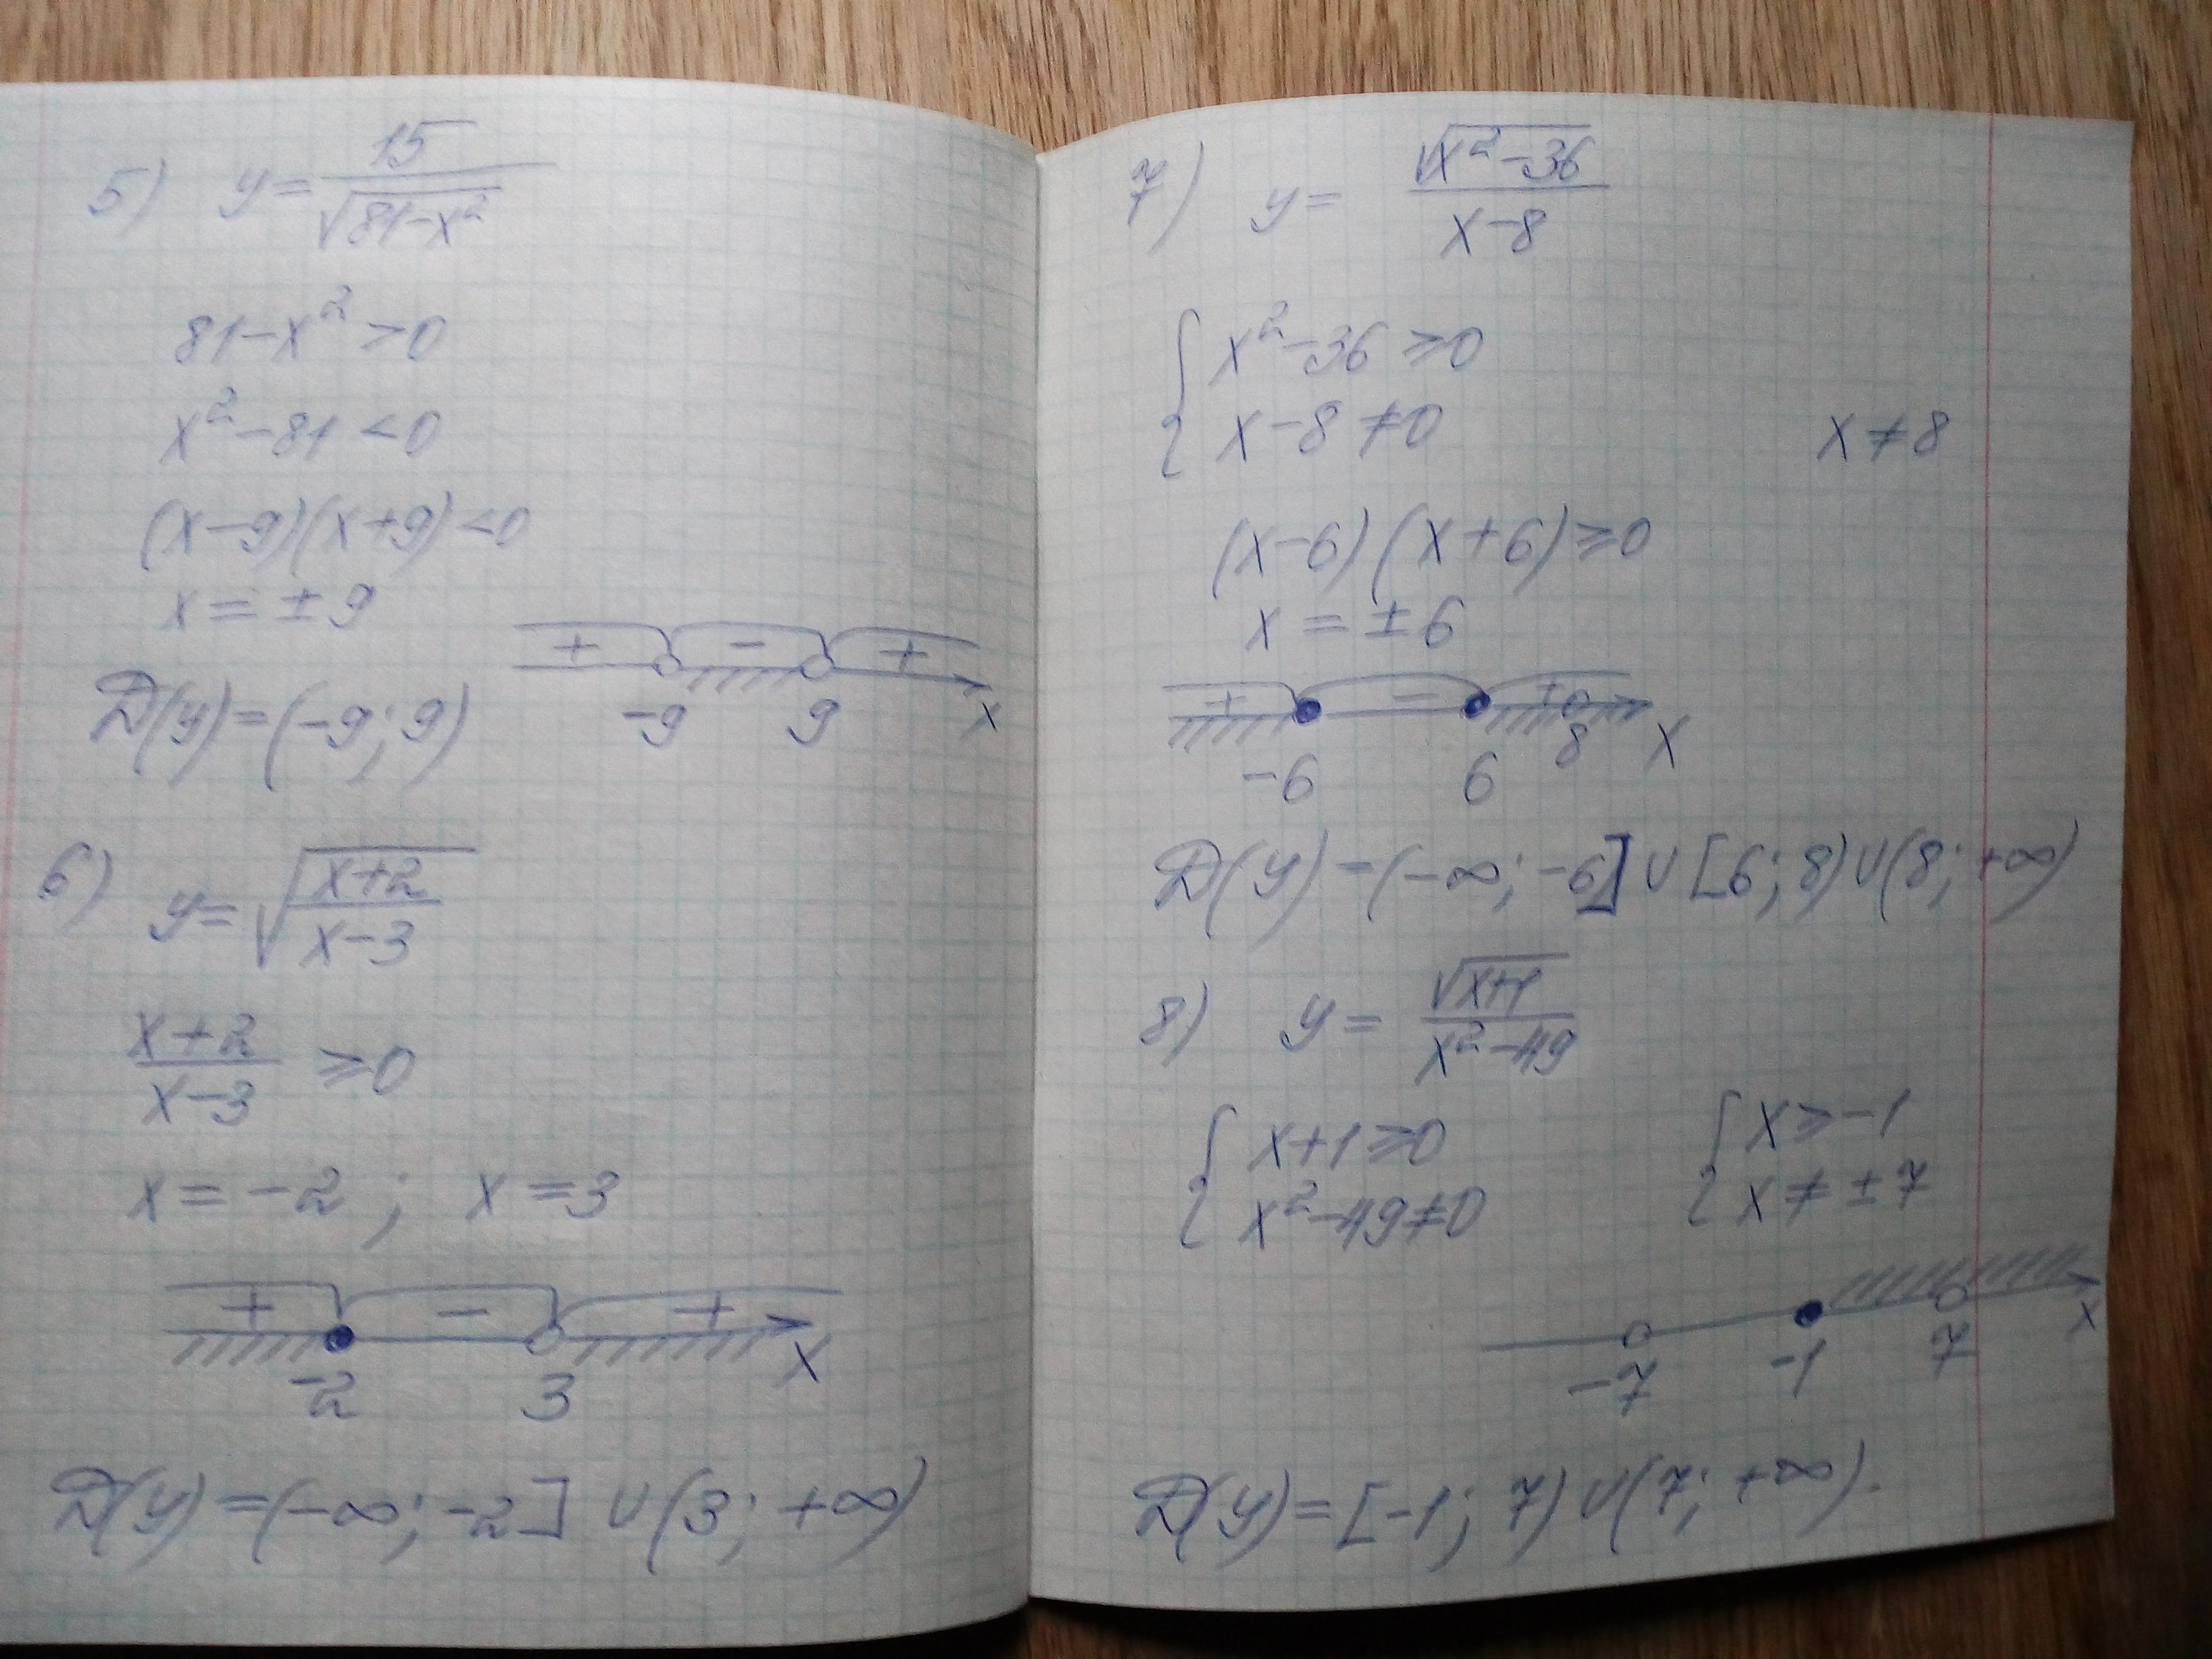 5) y = 15 / √(81-x²)
81-x² > 0
x² - 81 < 0
(x-9)(x+9) < 0
x = ± 9
+ - +
-9 9 x
D(y) = (-9; 9)
6) y = √((x+2)/(x-3))
(x+2)/(x-3) ≥ 0
x = -2 ; x = 3
+ - +
-2 3 x
D(y) = (-∞; -2] ∪ (3; +∞)
7) y = √(x²-36) / (x-8)
{ x² - 36 ≥ 0
{ x - 8 ≠ 0 x ≠ 8
(x-6)(x+6) ≥ 0
x = ± 6
+ - +
-6 6 8 x
D(y) = (-∞; -6] ∪ [6; 8) ∪ (8; +∞)
8) y = √(x+1) / (x²-49)
{ x+1 ≥ 0 { x ≥ -1
{ x² - 49 ≠ 0 { x ≠ ± 7
-7 -1 7 x
D(y) = [-1; 7) ∪ (7; +∞).